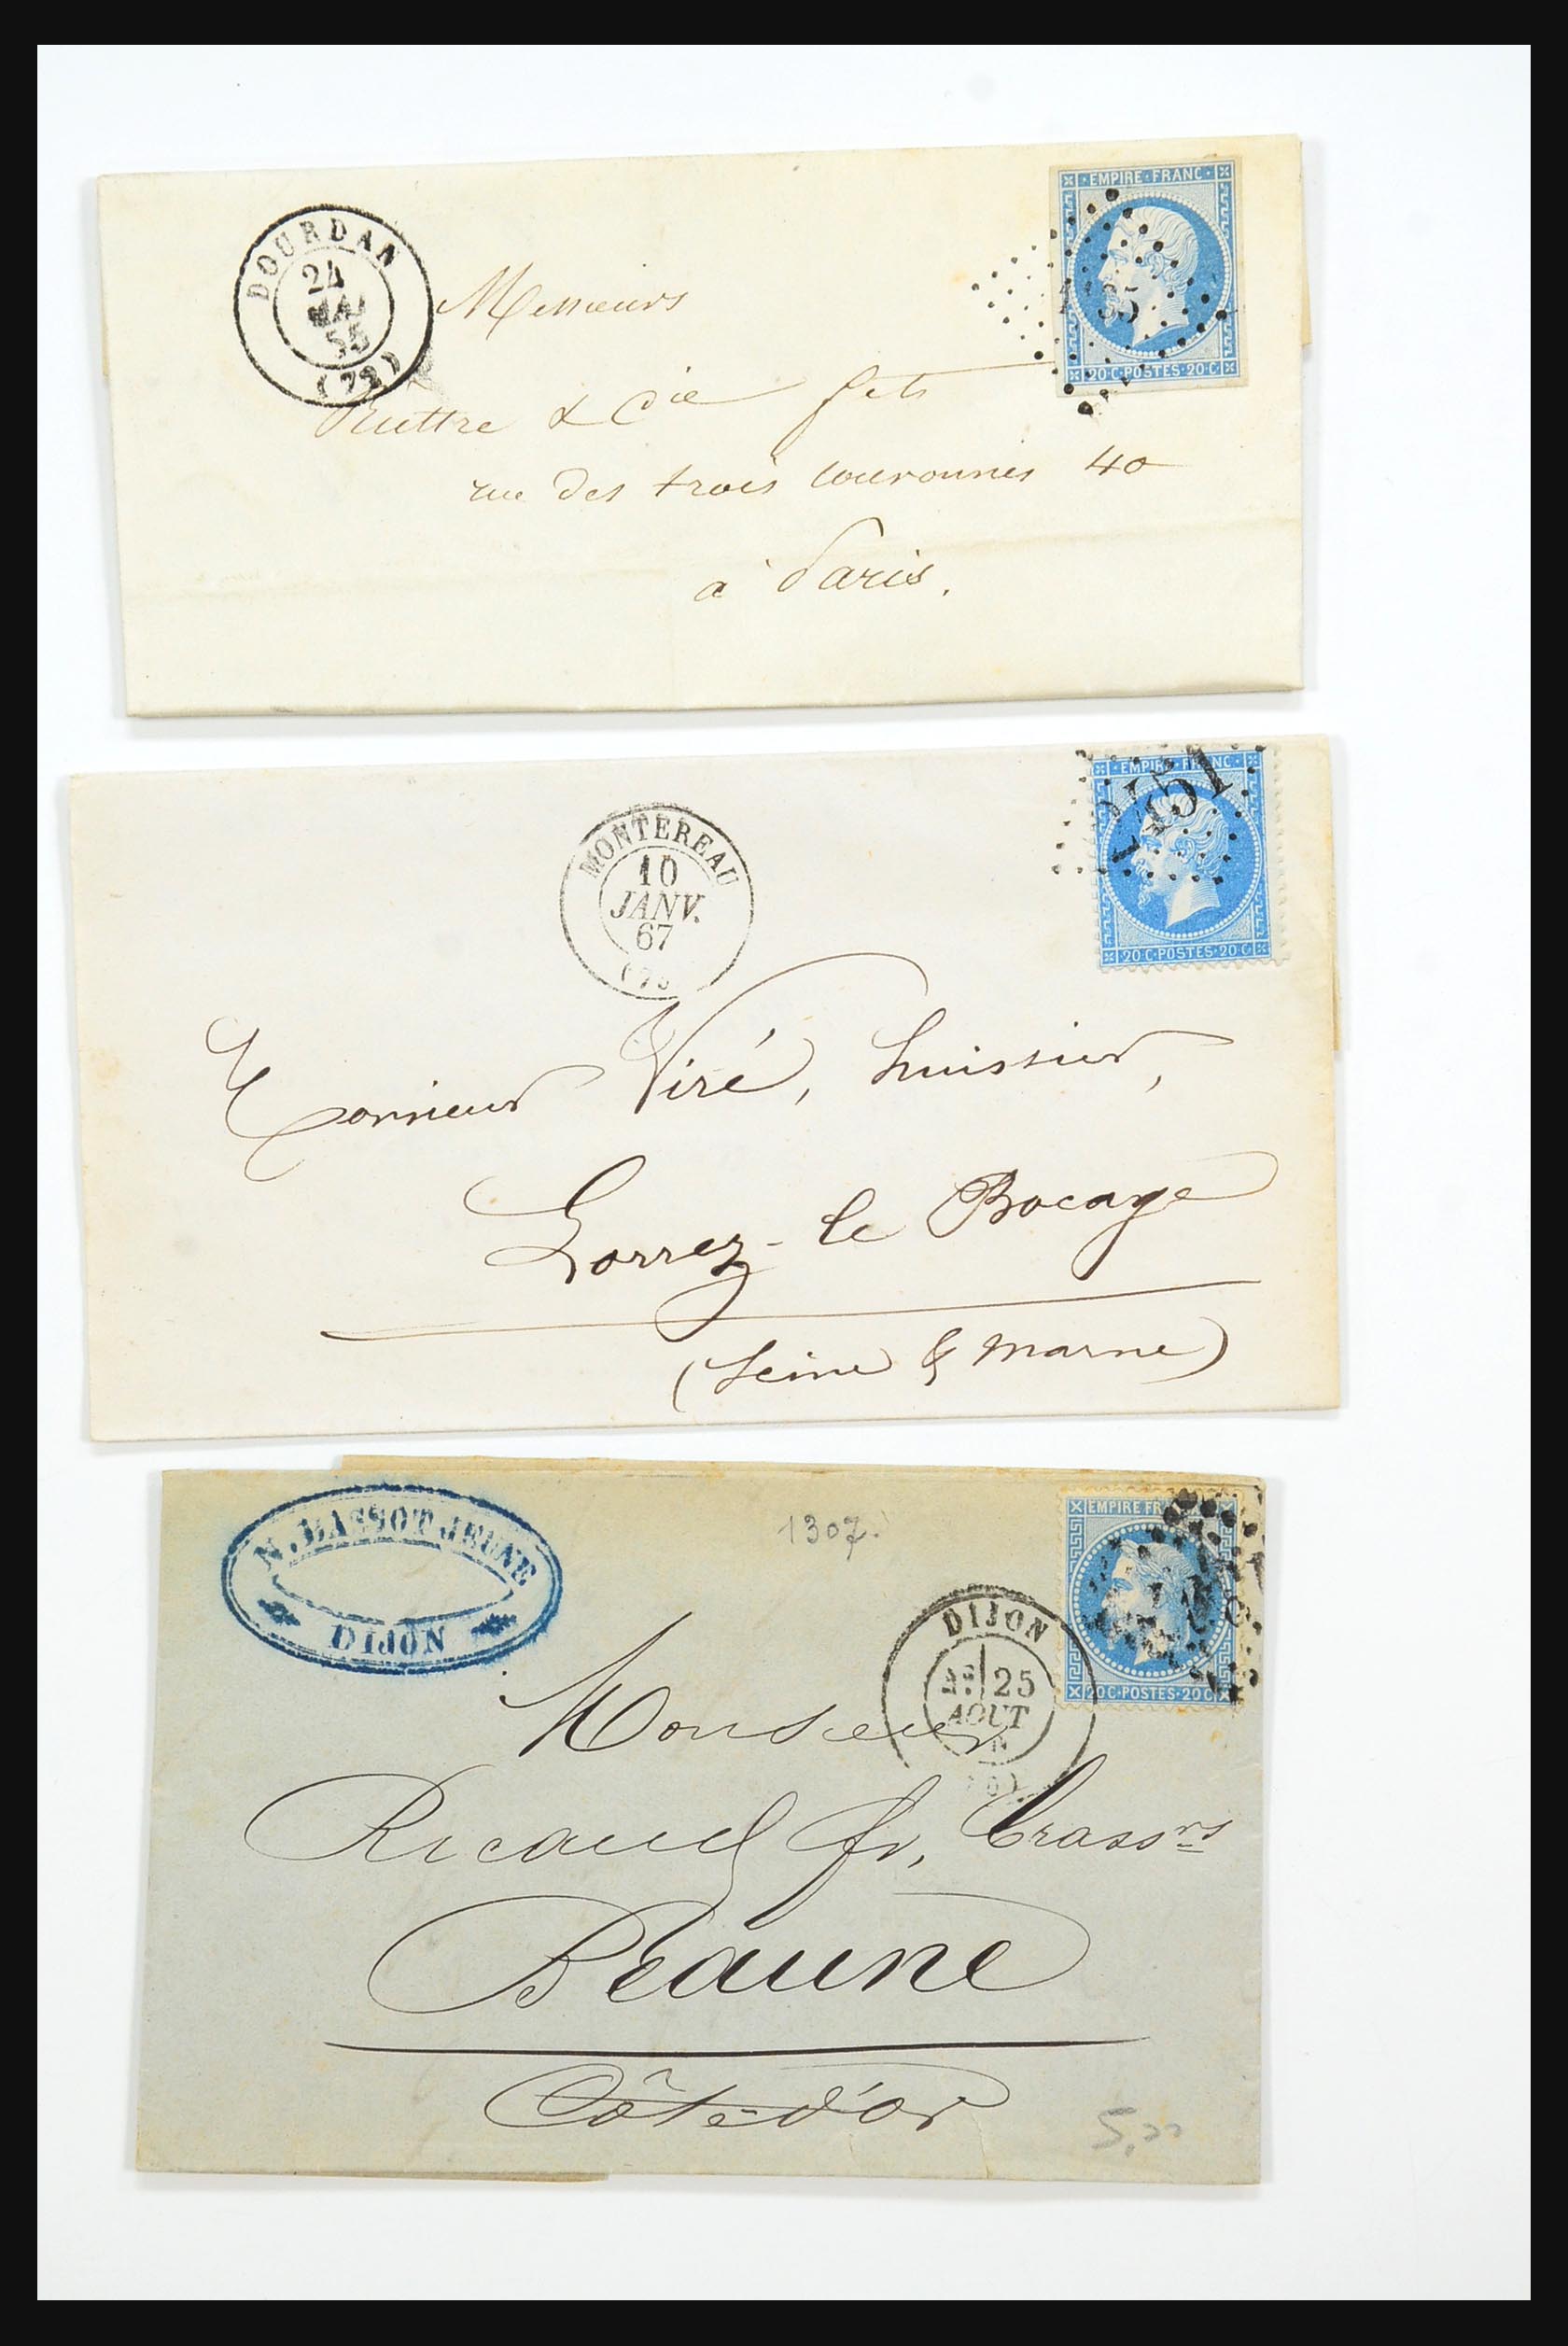 DOURDAN
24
MAI
55
(72)
EMPIRE·FRANC·
20·C·POSTES·20·C
Messieurs
& Cie
rue des trois couronnes 40
à Paris.
MONTEREAU
10
JANV.
67
EMPIRE·FRANC·
2451
20·C·POSTES·20·C
Monsieur Viré, huissier,
Lorrez-le Bocage
(Seine & Marne)
N. LASSOT JEUNE
DIJON
1307.
EMPIRE FRANC
20C·POSTES·20C
DIJON
25
AOUT
Monsieur
Ricaud fr, brassrs
Beaune
Côte d'or
5,